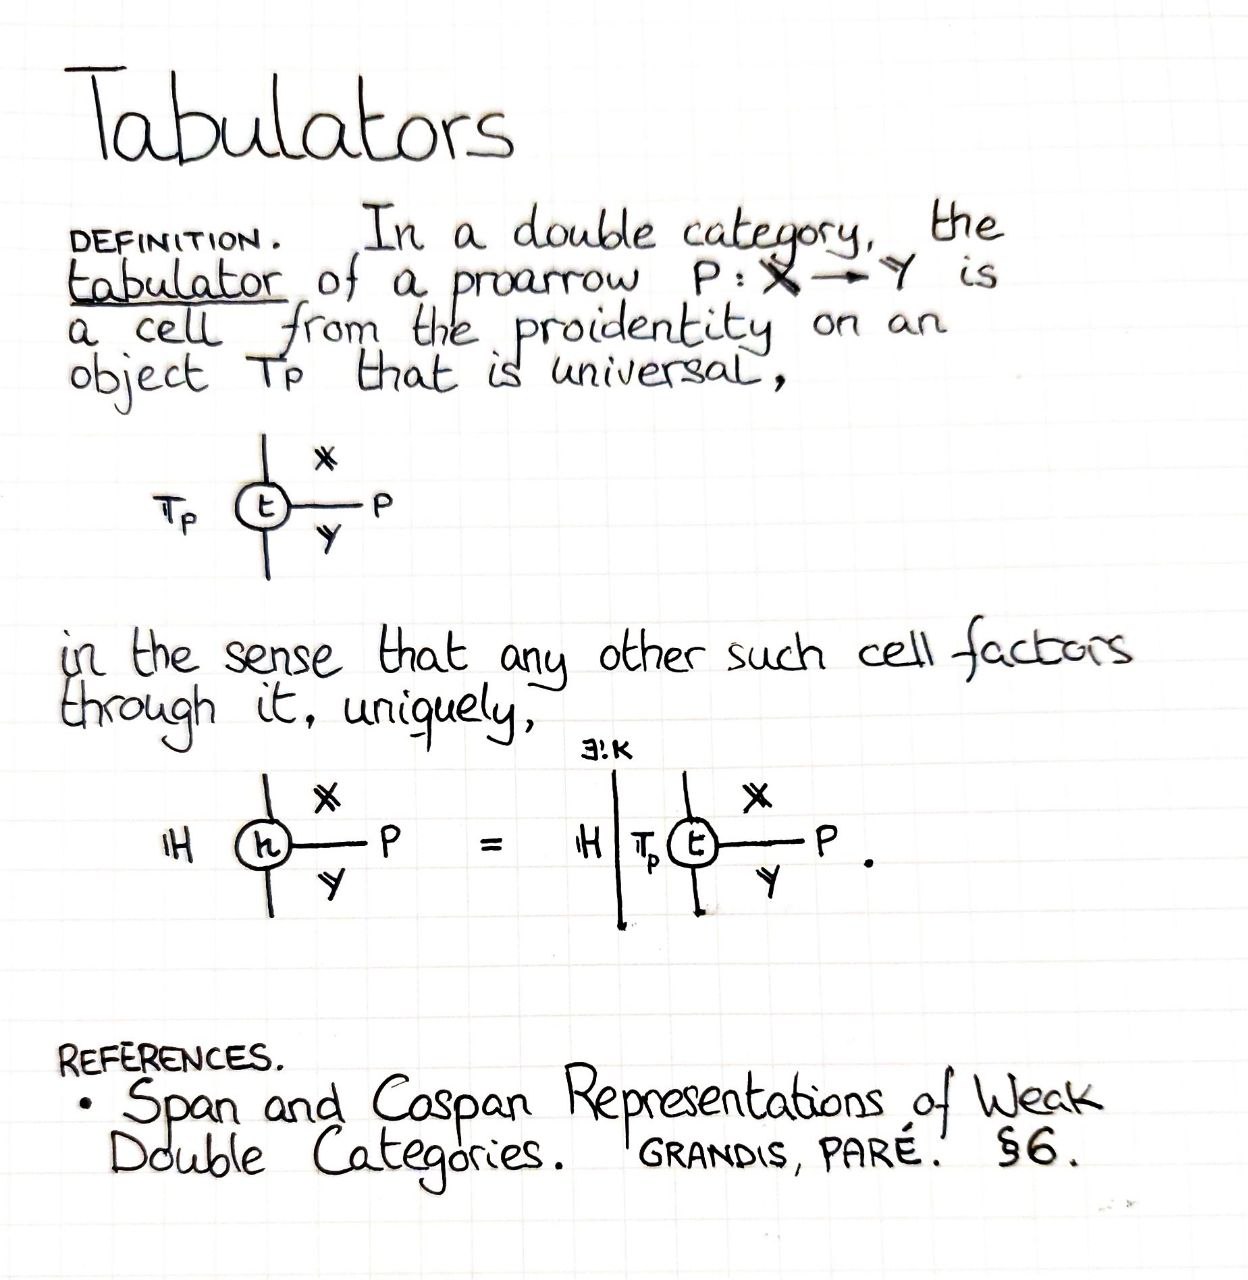 Tabulators
DEFINITION. In a double category, the
tabulator of a proarrow P : 𝕏 → 𝕐 is
a cell from the proidentity on an
object 𝕋P that is universal,
𝕏
𝕋P t P
𝕐
in the sense that any other such cell factors
through it, uniquely,
∃!K
𝕏 𝕏
ℍ h P = ℍ 𝕋P t P .
𝕐 𝕐
REFERENCES.
• Span and Cospan Representations of Weak
Double Categories. GRANDIS, PARÉ. §6.